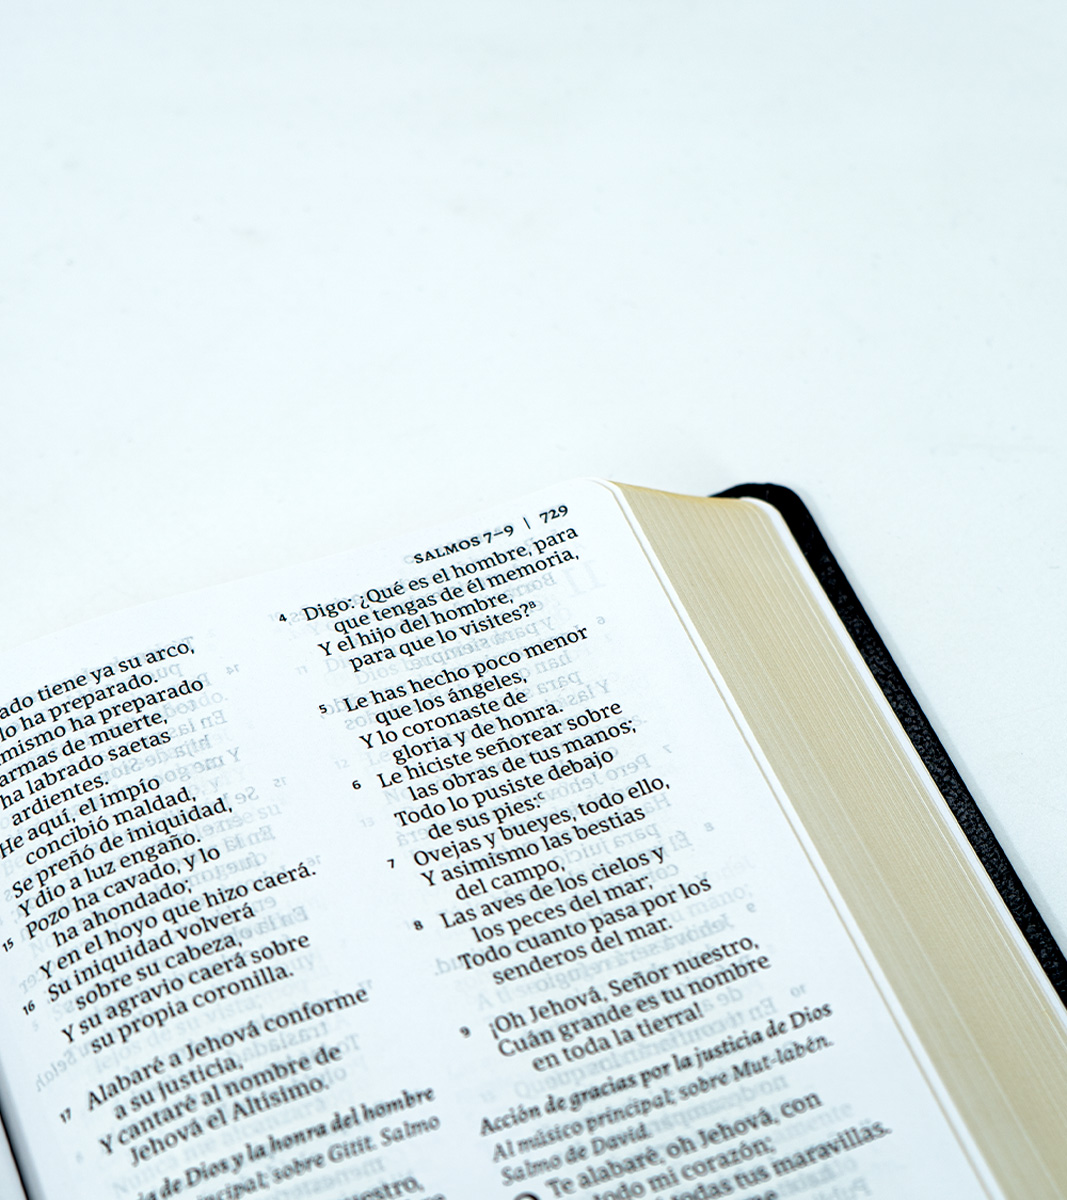 SALMOS 7–9 | 729
ado tiene ya su arco,
lo ha preparado.
mismo ha preparado
armas de muerte,
ha labrado saetas
ardientes.
He aquí, el impío
concibió maldad,
Se preñó de iniquidad,
Y dio a luz engaño.
15 Pozo ha cavado, y lo
ha ahondado;
Y en el hoyo que hizo caerá.
16 Su iniquidad volverá
sobre su cabeza,
Y su agravio caerá sobre
su propia coronilla.
17 Alabaré a Jehová conforme
a su justicia,
Y cantaré al nombre de
Jehová el Altísimo.
de Dios y la honra del hombre
principal; sobre Gitit. Salmo
4 Digo: ¿Qué es el hombre, para
que tengas de él memoria,
Y el hijo del hombre,
para que lo visites?B
5 Le has hecho poco menor
que los ángeles,
Y lo coronaste de
gloria y de honra.
6 Le hiciste señorear sobre
las obras de tus manos;
Todo lo pusiste debajo
de sus pies:C
7 Ovejas y bueyes, todo ello,
Y asimismo las bestias
del campo,
8 Las aves de los cielos y
los peces del mar;
Todo cuanto pasa por los
senderos del mar.
9 ¡Oh Jehová, Señor nuestro,
Cuán grande es tu nombre
en toda la tierra!
Acción de gracias por la justicia de Dios
Al músico principal; sobre Mut-labén.
Salmo de David.
Te alabaré, oh Jehová, con
todo mi corazón;
todas tus maravillas.